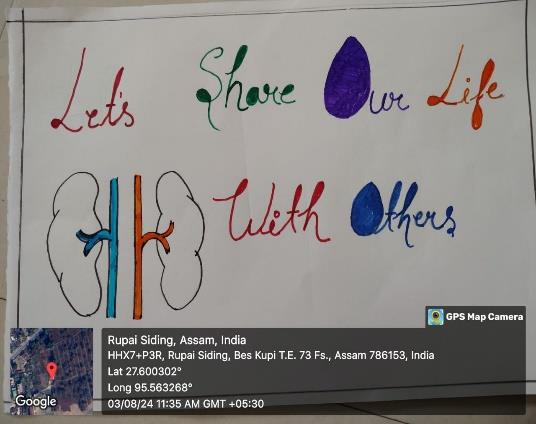 Let's Share Our Life
With Others
GPS Map Camera
Rupai Siding, Assam, India
HHX7+P3R, Rupai Siding, Bes Kupi T.E. 73 Fs., Assam 786153, India
Lat 27.600302°
Long 95.563268°
03/08/24 11:35 AM GMT +05:30
Google